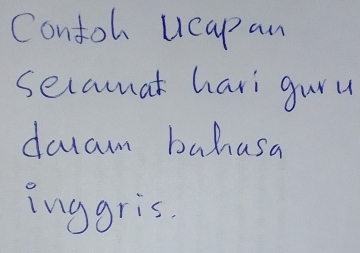 Contoh Ucapan
selamat hari guru
dalam bahasa
inggris.